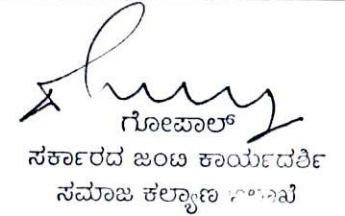 ಗೋಪಾಲ್
ಸರ್ಕಾರದ ಜಂಟಿ ಕಾರ್ಯದರ್ಶಿ
ಸಮಾಜ ಕಲ್ಯಾಣ